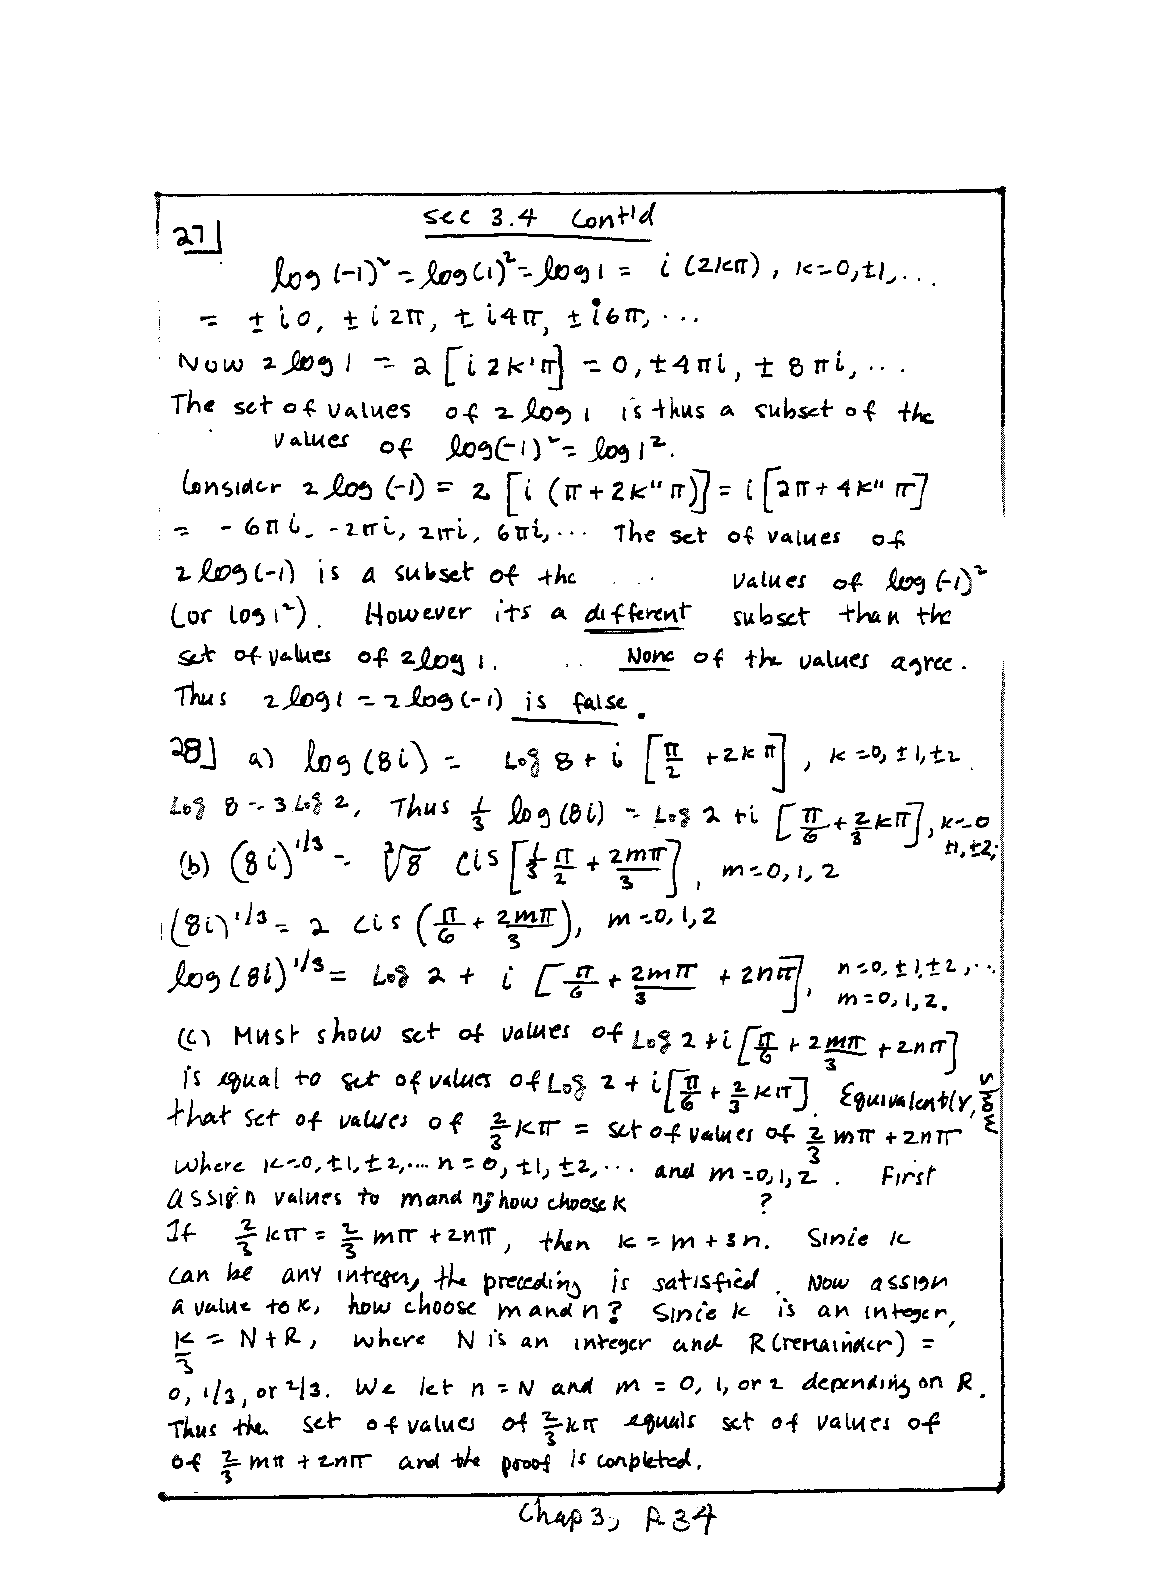 sec 3.4 Cont'd
27]
log (-1)² = log(1)² = log 1 = i (2kπ), k=0,±1,...
= ± i0, ± i2π, ± i4π, ± i6π, ...
Now 2 log 1 = 2 [i 2k'π] = 0, ±4πi, ± 8πi, ...
The set of values of 2 log 1 is thus a subset of the
values of log(-1)² = log 1².
Consider 2 log (-1) = 2 [i (π + 2k''π)] = i [2π + 4k''π]
= -6πi, -2πi, 2πi, 6πi, ... The set of values of
2 log(-1) is a subset of the ... values of log (-1)²
(or log 1²). However its a different subset than the
set of values of 2 log 1. .. None of the values agree.
Thus 2 log 1 = 2 log (-1) is false.
28] a) log (8i) = Log 8 + i [π/2 + 2kπ], k=0, ±1, ±2
Log 8 = 3 Log 2, Thus 1/3 log (8i) = Log 2 + i [π/6 + 2/3 kπ], k=0
±1, ±2;
(b) (8i)^1/3 = ³√8 cis [1/3 π/2 + 2mπ/3], m=0, 1, 2
(8i)^1/3 = 2 cis (π/6 + 2mπ/3), m=0, 1, 2
log (8i)^1/3 = Log 2 + i [π/6 + 2mπ/3 + 2nπ], n=0, ±1, ±2, ...
m=0, 1, 2.
(c) Must show set of values of Log 2 + i [π/6 + 2mπ/3 + 2nπ]
is equal to set of values of Log 2 + i [π/6 + 2/3 kπ]. Equivalently, show
that set of values of 2/3 kπ = set of values of 2/3 mπ + 2nπ
where k=0, ±1, ±2, ... n = 0, ±1, ±2, ... and m=0, 1, 2. First
assign values to m and n, how choose k ?
If 2/3 kπ = 2/3 mπ + 2nπ, then k = m + 3n. Since k
can be any integer, the preceding is satisfied. Now assign
a value to k, how choose m and n? Since k is an integer,
k/3 = N + R, where N is an integer and R (remainder) =
0, 1/3, or 2/3. We let n = N and m = 0, 1, or 2 depending on R.
Thus the set of values of 2/3 kπ equals set of values of
of 2/3 mπ + 2nπ and the proof is completed.
Chap 3, P. 34